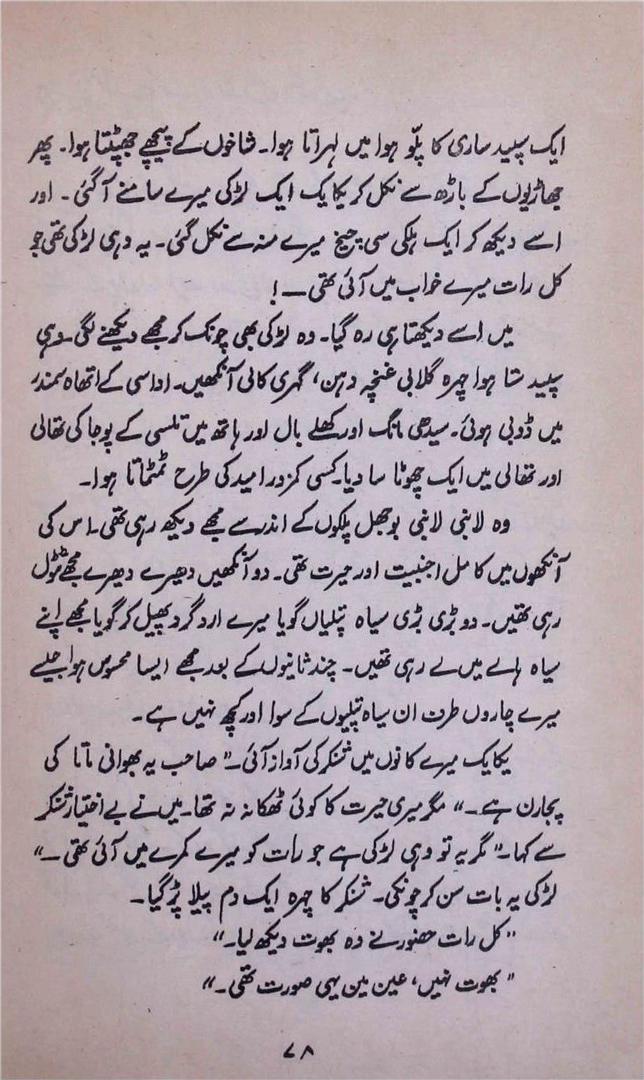 ایک سپید ساری کا پلّو ہوا میں لہراتا ہوا۔ شاخوں کے پیچھے جھپٹتا ہوا۔ پھر
جھاڑیوں کے باڑھ سے نکل کر یکایک ایک لڑکی میرے سامنے آگئی ۔ اور
اسے دیکھ کر ایک ہلکی سی چیخ میرے منہ سے نکل گئی۔ یہ وہی لڑکی تھی جو
کل رات میرے خواب میں آئی تھی ــ !
میں اسے دیکھتا ہی رہ گیا۔ وہ لڑکی بھی چونک کر مجھے دیکھنے لگی۔ وہی
سپید ستا ہوا چہرہ گلابی غنچہ دہن، گہری کالی آنکھیں۔ اداسی کے اتھاہ سمندر
میں ڈوبی ہوئی۔ سیدھی مانگ اور کھلے بال اور ہاتھ میں تلسی کے پوجا کی تھالی
اور تھالی میں ایک چھوٹا سا دیا۔ کسی کمزور امید کی طرح ٹمٹاتا ہوا۔
وہ لانبی لانبی بوجھل پلکوں کے اندر سے مجھے دیکھ رہی تھی۔ اس کی
آنکھوں میں کامل اجنبیت اور حیرت تھی۔ دو آنکھیں دھیرے دھیرے مجھے ٹٹول
رہی تھیں۔ دو بڑی بڑی سیاہ پتلیاں گویا میرے ارد گرد پھیل کر گویا مجھے اپنے
سیاہ ہالے میں لے رہی تھیں۔ چند ثانیوں کے بعد مجھے ایسا محسوس ہوا جیسے
میرے چاروں طرف ان سیاہ پتلیوں کے سوا اور کچھ نہیں ہے۔
یکایک میرے کانوں میں شنکر کی آواز آئی۔ " صاحب یہ بھوانی ماتا کی
پجارن ہے۔" مگر میری حیرت کا کوئی ٹھکانہ نہ تھا۔ میں نے بے اختیار شنکر
سے کہا۔ " مگر یہ تو وہی لڑکی ہے جو رات کو میرے کمرے میں آئی تھی ــ"
لڑکی یہ بات سن کر چونکی۔ شنکر کا چہرہ ایک دم پیلا پڑ گیا۔
"کل رات حضور نے وہ بھوت دیکھ لیا۔"
" بھوت نہیں، عین مین یہی صورت تھی۔"
۷۸